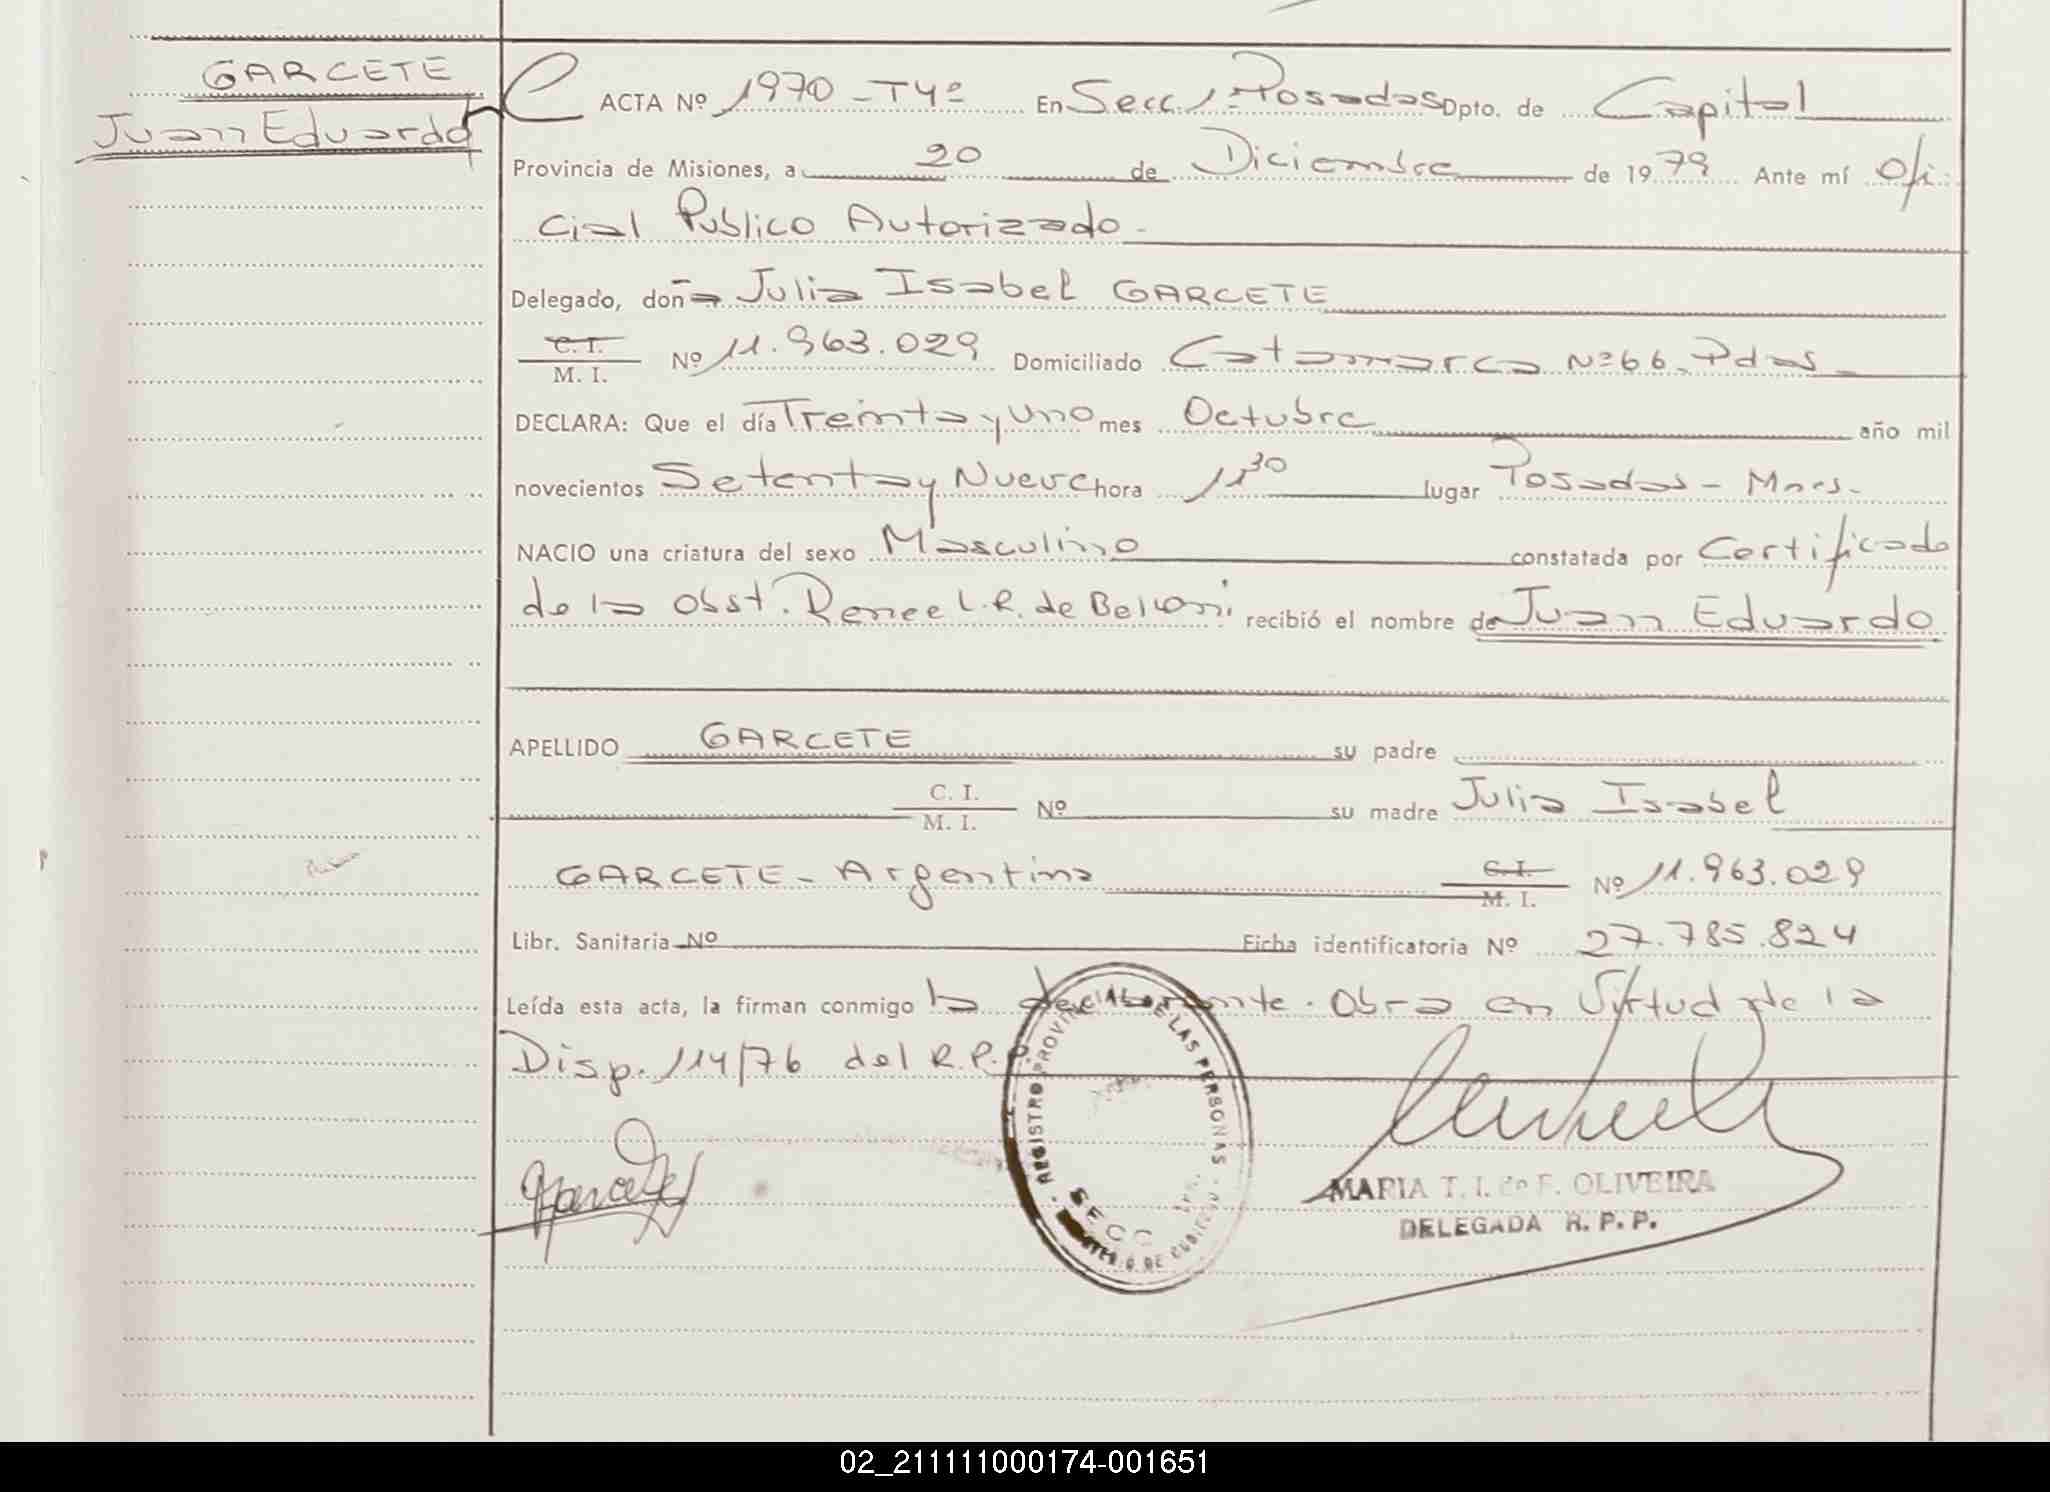 GARCETE
Juan Eduardo
ACTA Nº 1970 - T4º En Secc. 1ª Posadas Dpto. de Capital
Provincia de Misiones, a 20 de Diciembre de 1979 Ante mí Ofi
cial Publico Autorizado.
Delegado, doña Julia Isabel GARCETE
C. I.
M. I. Nº 11.963.029 Domiciliado Catamarca Nº 66. Pdas
DECLARA: Que el día Treinta y Uno mes Octubre año mil
novecientos Setenta y Nueve hora 11 30 lugar Posadas - Mnes.
NACIO una criatura del sexo Masculino constatada por Certificado
de la Obst. Renee L.R. de Belloni recibió el nombre de Juan Eduardo
APELLIDO GARCETE su padre
C. I.
M. I. Nº su madre Julia Isabel
GARCETE - Argentina C. I.
M. I. Nº 11.963.029
Libr. Sanitaria Nº Ficha identificatoria Nº 27.785.824
Leída esta acta, la firman conmigo la declarante. Obra en Virtud de la
Disp. 114/76 del R.P.P.
REGISTRO PROVINCIAL DE LAS PERSONAS
SECC
Garcete
MARIA T. I. de F. OLIVEIRA
DELEGADA R. P. P.
02_211111000174-001651